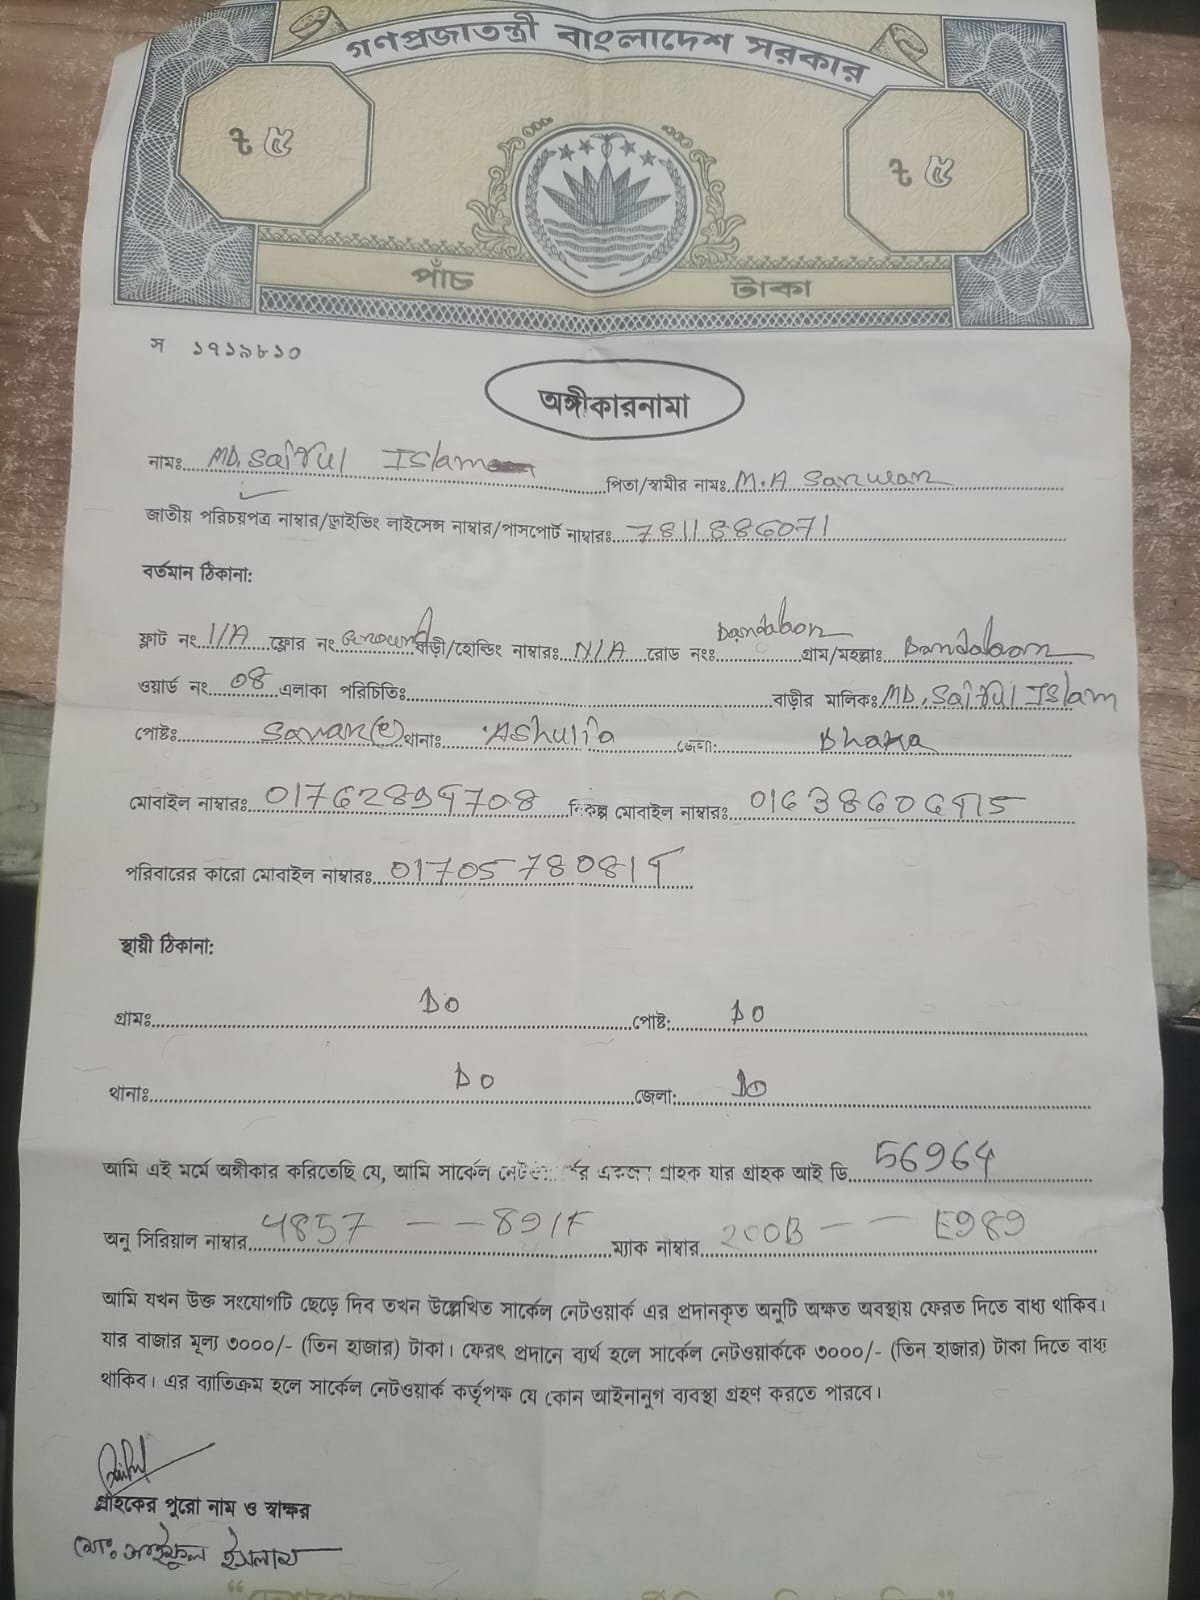 গণপ্রজাতন্ত্রী বাংলাদেশ সরকার
৳ ৫ ৳ ৫
পাঁচ টাকা
স ১৭১৯৮১০
অঙ্গীকারনামা
নামঃ MD. Saiful Islam পিতা/স্বামীর নামঃ M.A Sarwar
জাতীয় পরিচয়পত্র নাম্বার/ড্রাইভিং লাইসেন্স নাম্বার/পাসপোর্ট নাম্বারঃ 7811886071
বর্তমান ঠিকানা:
ফ্লাট নং 1/A ফ্লোর নং Ground বাড়ী/হোল্ডিং নাম্বারঃ N/A রোড নংঃ Dandabor গ্রাম/মহল্লাঃ Dandabor
ওয়ার্ড নং 08 এলাকা পরিচিতিঃ বাড়ীর মালিকঃ MD. Saiful Islam
পোষ্টঃ Savar(c) থানাঃ Ashulia জেলা: Dhaka
মোবাইল নাম্বারঃ 01762899708 বিকল্প মোবাইল নাম্বারঃ 01638606915
পরিবারের কারো মোবাইল নাম্বারঃ 01705780819
স্থায়ী ঠিকানা:
গ্রামঃ DO পোষ্ট: DO
থানাঃ DO জেলা: DO
আমি এই মর্মে অঙ্গীকার করিতেছি যে, আমি সার্কেল নেটওয়ার্কের একজন গ্রাহক যার গ্রাহক আই ডি 56964
অনু সিরিয়াল নাম্বার 4857 -- 891F ম্যাক নাম্বার 200B -- E989
আমি যখন উক্ত সংযোগটি ছেড়ে দিব তখন উল্লেখিত সার্কেল নেটওয়ার্ক এর প্রদানকৃত অনুটি অক্ষত অবস্থায় ফেরত দিতে বাধ্য থাকিব।
যার বাজার মূল্য ৩০০০/- (তিন হাজার) টাকা। ফেরৎ প্রদানে ব্যর্থ হলে সার্কেল নেটওয়ার্ককে ৩০০০/- (তিন হাজার) টাকা দিতে বাধ্য
থাকিব। এর ব্যাতিক্রম হলে সার্কেল নেটওয়ার্ক কর্তৃপক্ষ যে কোন আইনানুগ ব্যবস্থা গ্রহণ করতে পারবে।
Saiful
গ্রাহকের পুরো নাম ও স্বাক্ষর
মোঃ সাইফুল ইসলাম